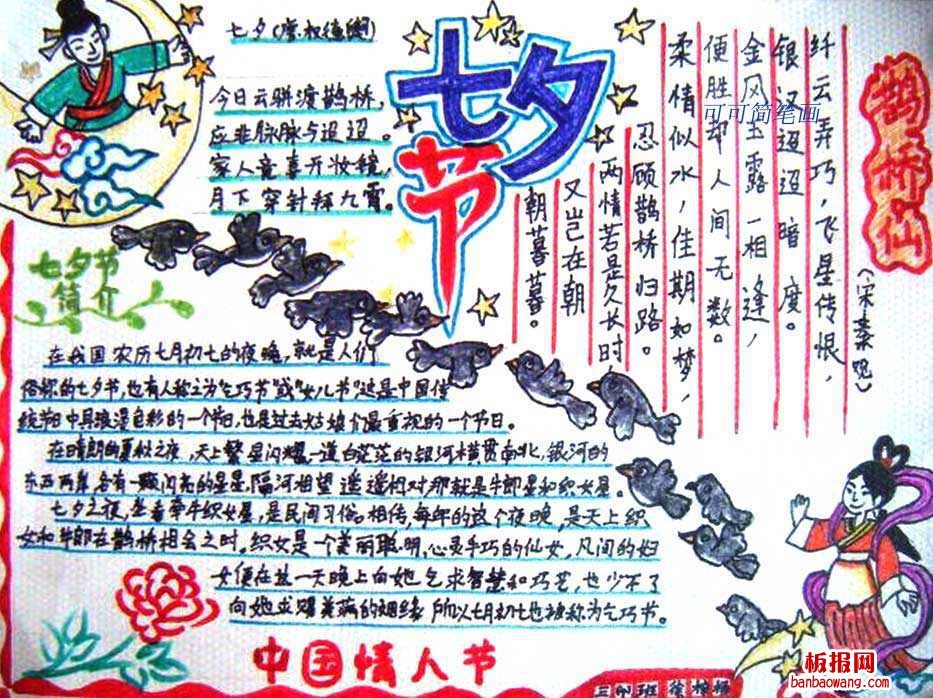 七夕(唐权德舆)
今日云骈渡鹊桥，
应非脉脉与迢迢。
家人竞喜开妆镜，
月下穿针拜九霄。
七夕
节
鹊桥仙
(宋秦观)
纤云弄巧，飞星传恨，
银汉迢迢暗度。
金风玉露一相逢，
便胜却人间无数。
柔情似水，佳期如梦，
忍顾鹊桥归路。
两情若是久长时
又岂在朝
朝暮暮。
可可简笔画
七夕节
简介
在我国农历七月初七的夜晚，就是人们
俗称的七夕节，也有人称之为“乞巧节”或“女儿节”这是中国传
统节日中具浪漫色彩的一个节日，也是过去姑娘们最重视的一个节日。
在晴朗的夏秋之夜，天上繁星闪耀一道白茫茫的银河横贯南北，银河的
东西两岸各有一颗闪亮的星星，隔河相望遥遥相对那就是牛郎星和织女星。
七夕之夜，坐看牵牛织女星，是民间习俗。相传，每年的这个夜晚，是天上织
女和牛郎在鹊桥相会之时。织女是一个美丽聪明，心灵手巧的仙女，凡间的妇
女便在这一天晚上向她乞求智慧和巧艺，也少不了
向她求赐美满的姻缘所以七月初七也被称为乞巧节。
中国情人节
班
板报网
banbaowang.com